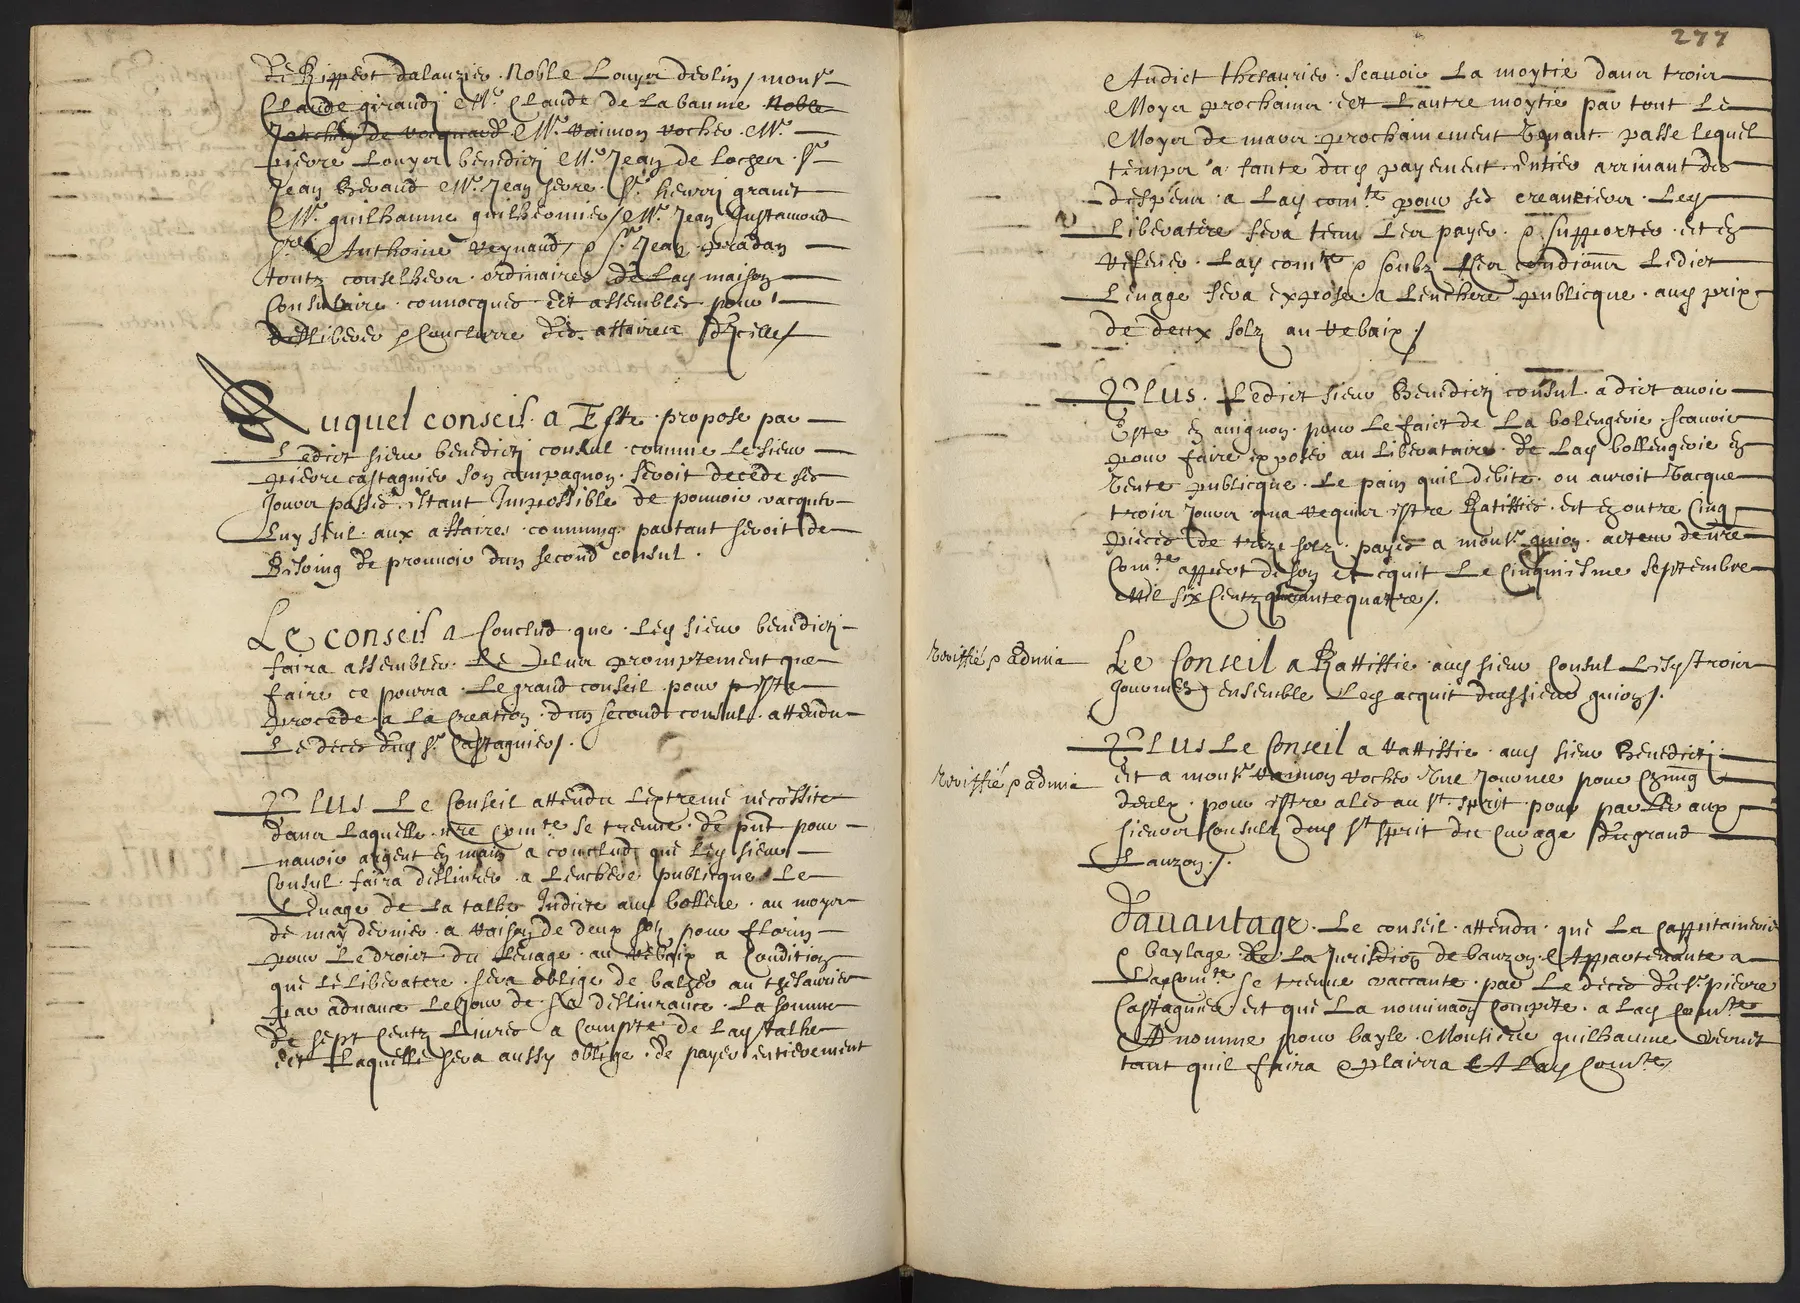 De Rippert dalauzier. Noble Louys devlin / mons.r
Claude giraudj M.e Claude de Labaume Noble
de M.e Raimon rocher M.e
pierre Louys benedicti M.e Jean de Loches. s.r
Jean Beraud M.e Jean serre. s.r henrri granet
M.e guilhaume guilheomier / M.e Jean Gustamond
Anthoine Reynaud, & s.r Jean pradan
toutz conselhers ordinaires de Lad maison
Consulaire convocques et assembles pour
dellibérer & Conclurre des affaires dIcelle /
Auquel conseil a Este propose par
Ledict sieur benedicti consul comme le sieur
pierre castagnier son compagnon seroit decede ses
Jours passes. Estant Impossible de pouvoir vacquer
Luy seul aux affaires communs partant seroit de
Besoing de prouvoir dun second consul.
Le conseil a Conclud que Led sieur benedicti
faira assembler Le plus promptement que
faire ce pourra Le grand conseil pour estre
procede a La creation dun second consul attendu
Le deces dud s.r Castagnier /.
Plus Le Conseil attendu Lextreme necessite
dans Laquelle n͞re Com.te se treuve de p͞nt pour
navoir argent en main a conclud que Led sieur
Consul faira deslivrer a Lenchere publicque Le
Levage de La talhe Indicte aud bollene au moys
de may dernier a raison de deux solz pour florin
pour Le droict du Levage au rebaix a Condition
que Le liberatere sera oblige de balher au thesaurier
par advance Le Jour de sa deslivrance La somme
de sept Centz Livres a Compte de Lad talhe
et Laquelle sera aussy oblige de payer entierement
277
Audict thesaurier scavoir La moytie dans trois
Moys prochains et Lautre moytie par tout Le
Moys de mars prochainement Venant passe lequel
temps a faute dud payement entier arrivant des
despens a Lad com.te pour ses creanciers Led
Liberatere sera tenu Les payer & supporter et en
relever Lad com.te & soubz Les condiōns Ledict
Levage sera expose a Lenchere publicque aud prix
de deux solz au rebaix /
Plus. Ledict sieur Benedicti consul a dict avoir
Este en avignon pour Le faict de La bolengerie scavoir
pour faire exposer au Liberataire de Lad bollengerie en
Vente publicque Le pain quil debite ou auroit Vacque
trois Jours qua requis estre Ratiffies et en outre Cinq
pieces de treze solz payes a mons.r guion acteur de n͞re
Com.te appert de son acquit Le Cinquiesme septembre
Mil six Centz quarante quatre /.
Le Conseil a Rattiffie aud sieur Consul Lesd trois
Journees ensemble Led acquit dud sieur guion /.
Plus Le Conseil a rattiffie aud sieur Benedicti
et a mons.r Raimon rocher Une Journee pour Chung
deulx pour estre alles au s.t sprit pour parler aux
sieurs Consulz dud s.t sprit du Cuvage du grand
Lauzon /.
davantage. Le conseil attendu que La Cappitainerie
& baylage de La Jurisdiōn de bauzon Appartenante a
Lad com.te se treuve vaccante par Le deces du s.r pierre
Castagnier et que La nominaōn Compete a Lad Com.te
A nomme pour bayle Monsieur guilhaume vernet
tant quil faira & plairra A Lad Com.te